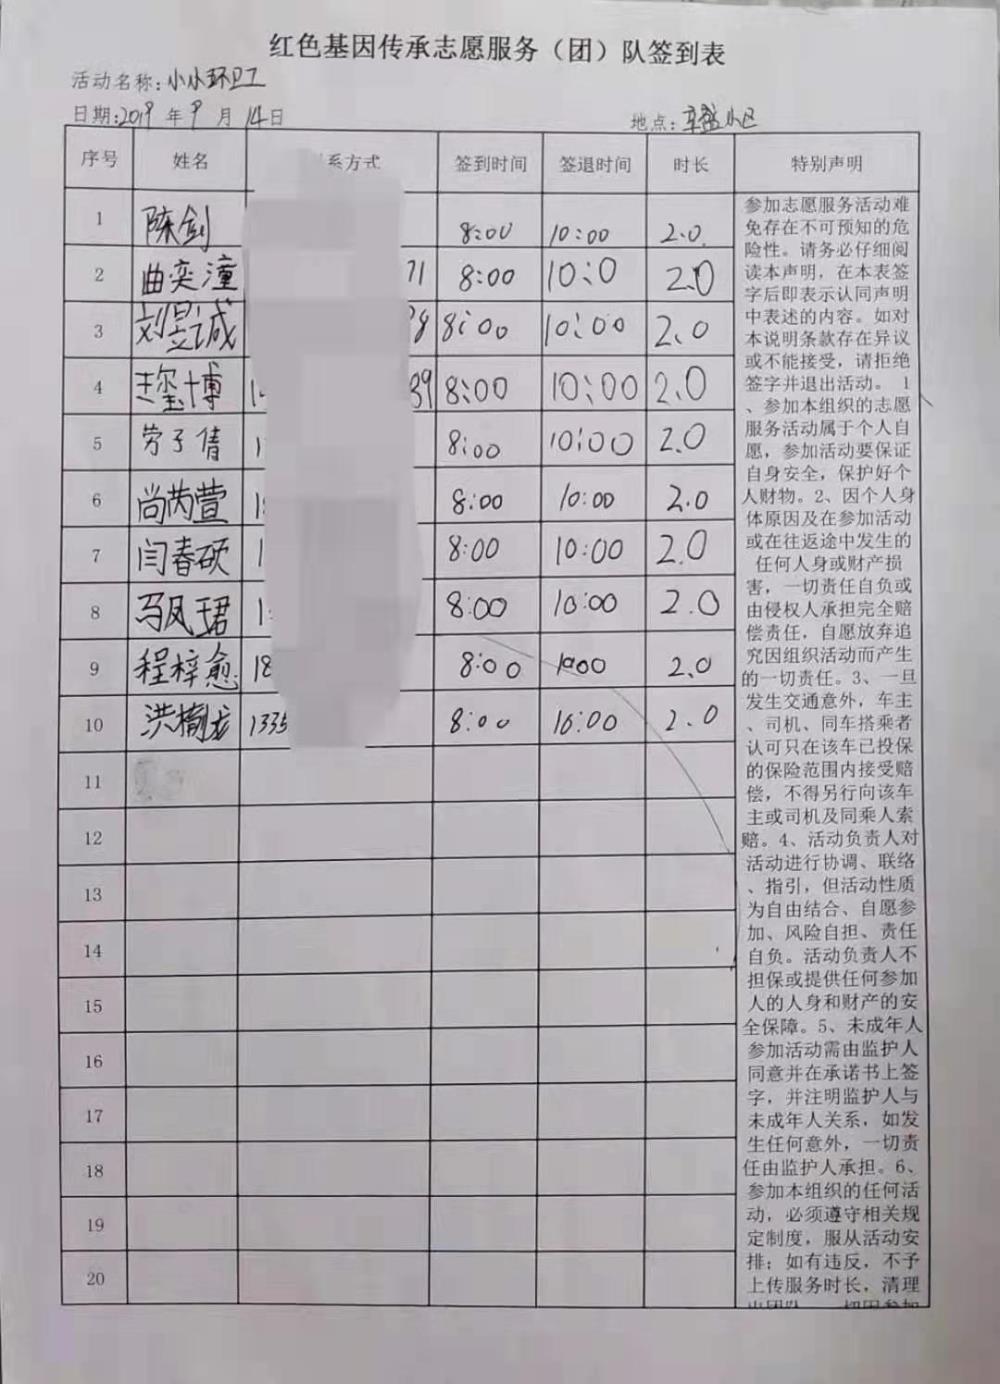 红色基因传承志愿服务（团）队签到表
活动名称：小小环卫工
日期：2019 年 9 月 14日 地点：小区
序号 姓名 系方式 签到时间 签退时间 时长 特别声明
1 陈剑 8:00 10:00 2.0
2 曲奕潼 71 8:00 10:0 2.0
3 刘昱诚 8:00 10:00 2.0
4 玺博 39 8:00 10:00 2.0
5 劳子倩 8:00 10:00 2.0
6 尚芮萱 8:00 10:00 2.0
7 闫春硕 8:00 10:00 2.0
8 马凤珺 8:00 10:00 2.0
9 程梓愈 18 8:00 1000 2.0
10 洪龙 1335 8:00 10:00 2.0
11
12
13
14
15
16
17
18
19
20
参加志愿服务活动难
免存在不可预知的危
险性。请务必仔细阅
读本声明，在本表签
字后即表示认同声明
中表述的内容。如对
本说明条款存在异议
或不能接受，请拒绝
签字并退出活动。 1
、参加本组织的志愿
服务活动属于个人自
愿，参加活动要保证
自身安全，保护好个
人财物。2、因个人身
体原因及在参加活动
或在往返途中发生的
任何人身或财产损
害，一切责任自负或
由侵权人承担完全赔
偿责任，自愿放弃追
究因组织活动而产生
的一切责任。3、一旦
发生交通意外，车主
、司机、同车搭乘者
认可只在该车已投保
的保险范围内接受赔
偿，不得另行向该车
主或司机及同乘人索
赔。4、活动负责人对
活动进行协调、联络
、指引，但活动性质
为自由结合、自愿参
加、风险自担、责任
自负。活动负责人不
担保或提供任何参加
人的人身和财产的安
全保障。5、未成年人
参加活动需由监护人
同意并在承诺书上签
字，并注明监护人与
未成年人关系，如发
生任何意外，一切责
任由监护人承担。6、
参加本组织的任何活
动，必须遵守相关规
定制度，服从活动安
排；如有违反，不予
上传服务时长，清理